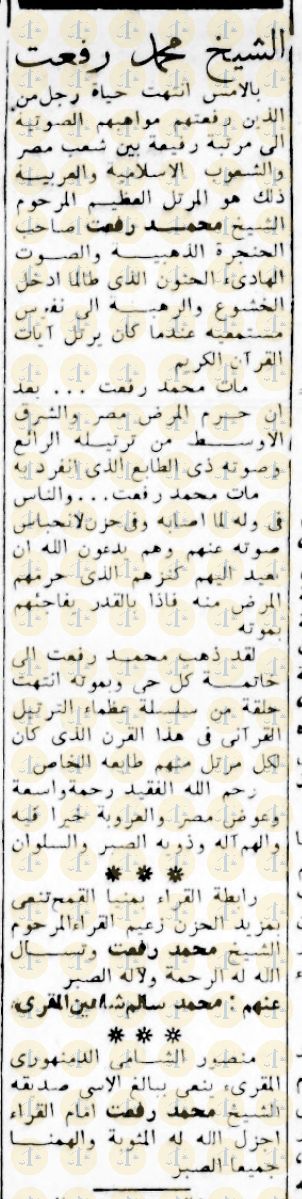 الشيخ محمد رفعت
بالامس انتهت حياة رجل من
الذين رفعتهم مواهبهم الصوتية
الى مرتبة رفيعة بين شعب مصر
والشعوب الاسلامية والعربية
ذلك هو المرتل العظيم المرحوم
الشيخ محمد رفعت صاحب
الحنجرة الذهبية والصوت
الهادىء الحنون الذى طالما ادخل
الخشوع والرهبة الى نفوس
مستمعيه عندما كان يرتل آيات
القرآن الكريم
مات محمد رفعت ... بعد
ان حرم المرض مصر والشرق
الاوسط من ترتيله الرائع
وصوته ذى الطابع الذى انفرد به
مات محمد رفعت ... والناس
فى وله لما اصابه وفى حزن لانحباس
صوته عنهم وهم يدعون الله ان
يعيد اليهم كنزهم الذى حرمهم
المرض منه فاذا بالقدر يفاجئهم
بموته
لقد ذهب محمد رفعت الى
خاتمة كل حى وبموته انتهت
حلقة من سلسلة عظماء الترتيل
القرآنى فى هذا القرن الذى كان
لكل مرتل منهم طابعه الخاص
رحم الله الفقيد رحمة واسعة
وعوض مصر والعروبة خيرا فيه
والهم آله وذويه الصبر والسلوان
***
رابطة القراء بمنيا القمح تنعى
بمزيد الحزن زعيم القراء المرحوم
الشيخ محمد رفعت وتسال
الله له الرحمة ولآله الصبر
عنهم : محمد سالم شاهين المقرىء
***
منصور الشامى الدمنهورى
المقرىء ينعى ببالغ الاسى صديقه
الشيخ محمد رفعت امام القراء
اجزل الله له المثوبة والهمنا
جميعا الصبر